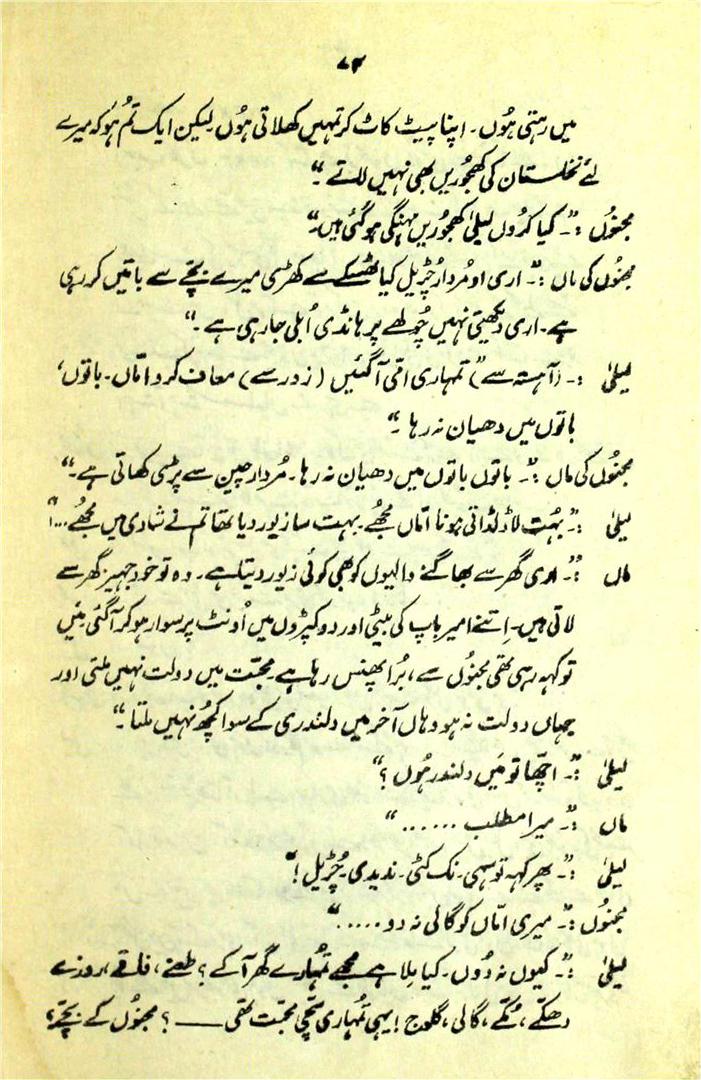 ۷۴
میں رہتی ہُوں۔ اپنا پیٹ کاٹ کر تمہیں کھلاتی ہُوں لیکن ایک تُم ہو کہ میرے
لئے نخلستان کی کھجُوریں بھی نہیں لاتے ۔"
مجنُوں :۔"کیا کروں لیلیٰ کھجُوریں مہنگی ہو گئی ہیں"
مجنُوں کی ماں :۔"اری او مُردار چُڑیل کیا ٹھسکے سے کھڑی میرے بچّے سے باتیں کر رہی
ہے۔ اری دیکھتی نہیں چُولھے پر ہانڈی اُبلی جا رہی ہے ۔"
لیلیٰ :۔ (آہستہ سے) "تمہاری امّی آ گئیں (زور سے) معاف کر دو امّاں۔ باتوں،
باتوں میں دھیان نہ رہا ۔"
مجنُوں کی ماں :۔"باتوں باتوں میں دھیان نہ رہا۔ مُردار چین سے پڑی کھاتی ہے۔"
لیلیٰ :۔"بہُت لاڈ لڈاتی ہو نا امّاں مجھُے۔ بہت سا زیور دیا تھا تم نے شادی میں مجھُے ...!"
ماں :۔"اری گھر سے بھاگنے والیوں کو بھی کوئی زیور دیتا ہے۔ وہ تو خود جہیز گھر سے
لاتی ہیں۔ اِتنے امیر باپ کی بیٹی اور دو کپڑوں میں اُونٹ پر سوار ہو کر آ گئی مَیں
تو کہہ رہی تھی مجنُوں سے، بُرا پھنس رہا ہے۔ محبّت میں دولت نہیں ملتی اور
جہاں دولت نہ ہو وہاں آخر میں دلندری کے سوا کچھُ نہیں ملتا ۔"
لیلیٰ :۔"اچھّا تو مَیں دلندر ہُوں ؟"
ماں :۔"میرا مطلب ......"
لیلیٰ :۔"پھر کہہ تو سہی۔ نک کٹی۔ ندیدی۔ چُڑیل !"
مجنُوں :۔"میری امّاں کو گالی نہ دو ....."
لیلیٰ :۔"کیوں نہ دُوں۔ کیا مِلا ہے مجھے تُمہارے گھر آ کے ؟ طعنے، فاقے، روزے
دھکّے، مُکّے، گالی، گلوج ! یہی تُمہاری سچّی محبّت تھی —— ؟ مجنُوں کے بچّے،